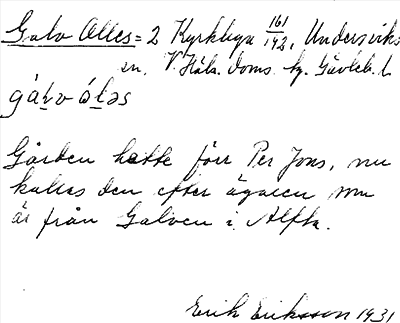 Galv Olles = 2 Kyrkbyn 161/142, Underviks
sn, V. Häls. doms. hg. Gävleb. l.
gáḻv óḻəs
Gården hette förr Per Jons, nu
kallas den efter ägaren som
är från Galven i Alfta.
Erik Eriksson 1931